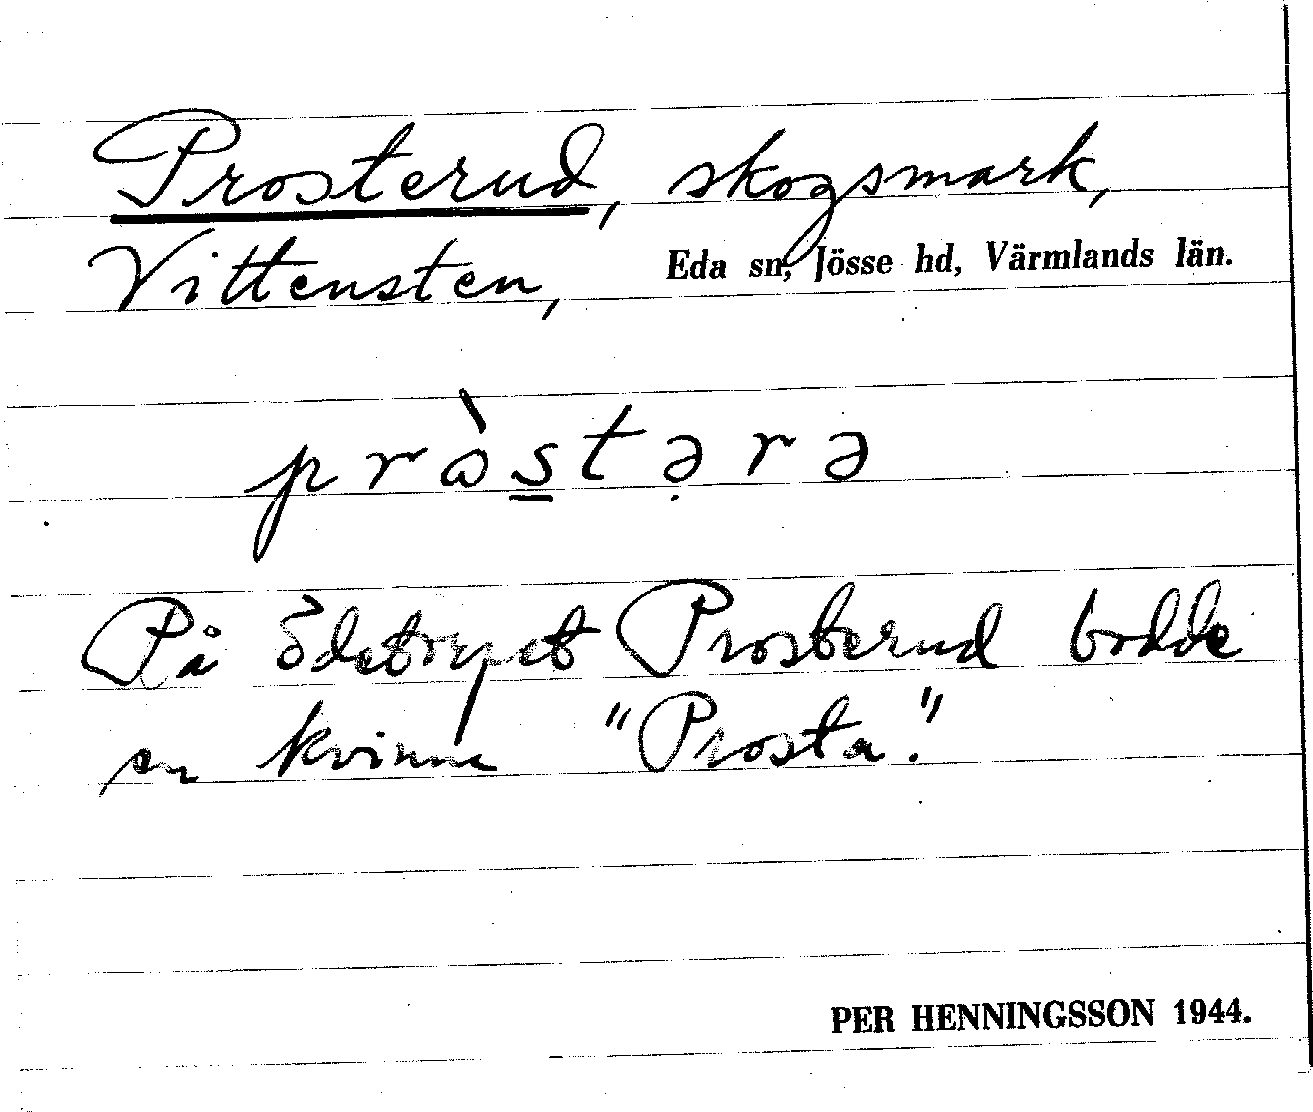 Prosterud, skogsmark,
Vittensten, Eda sn, Jösse hd, Värmlands län.
prὼs̲tə̣rə
På ödetorpet Prosterud bodde
en kvinna "Prosta."
PER HENNINGSSON 1944.